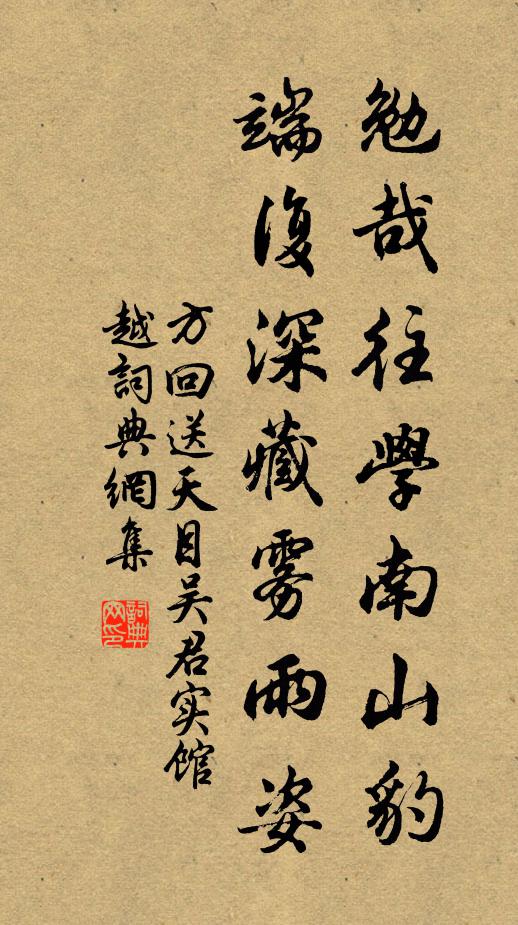 勉哉往學南山豹
端復深藏雾雨姿
方回送天目吴君实馆
越詞典網集
詞典网印